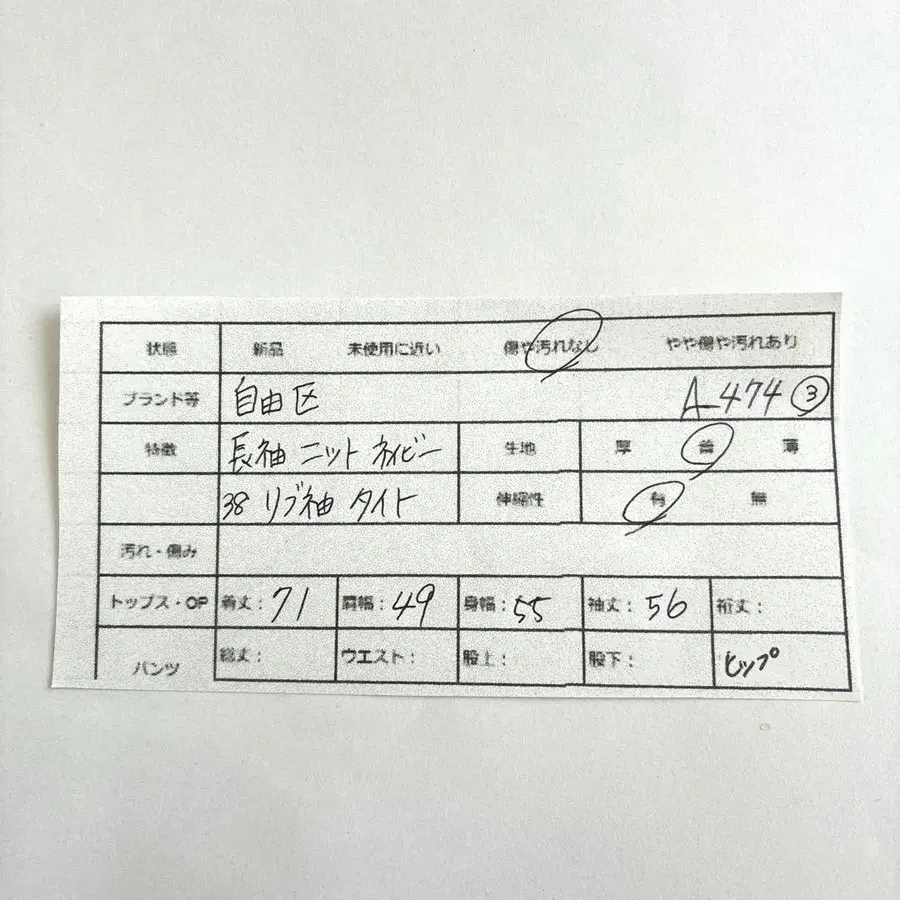 状態 新品 未使用に近い 傷や汚れなし やや傷や汚れあり
ブランド等 自由区 A-474 ③
特徴 長袖 ニット ネイビー 生地 厚 普 薄
38 リブ袖 タイト 伸縮性 有 無
汚れ・傷み
トップス・OP 着丈: 71 肩幅: 49 身幅: 55 袖丈: 56 裄丈:
パンツ 総丈: ウエスト: 股上: 股下: ヒップ